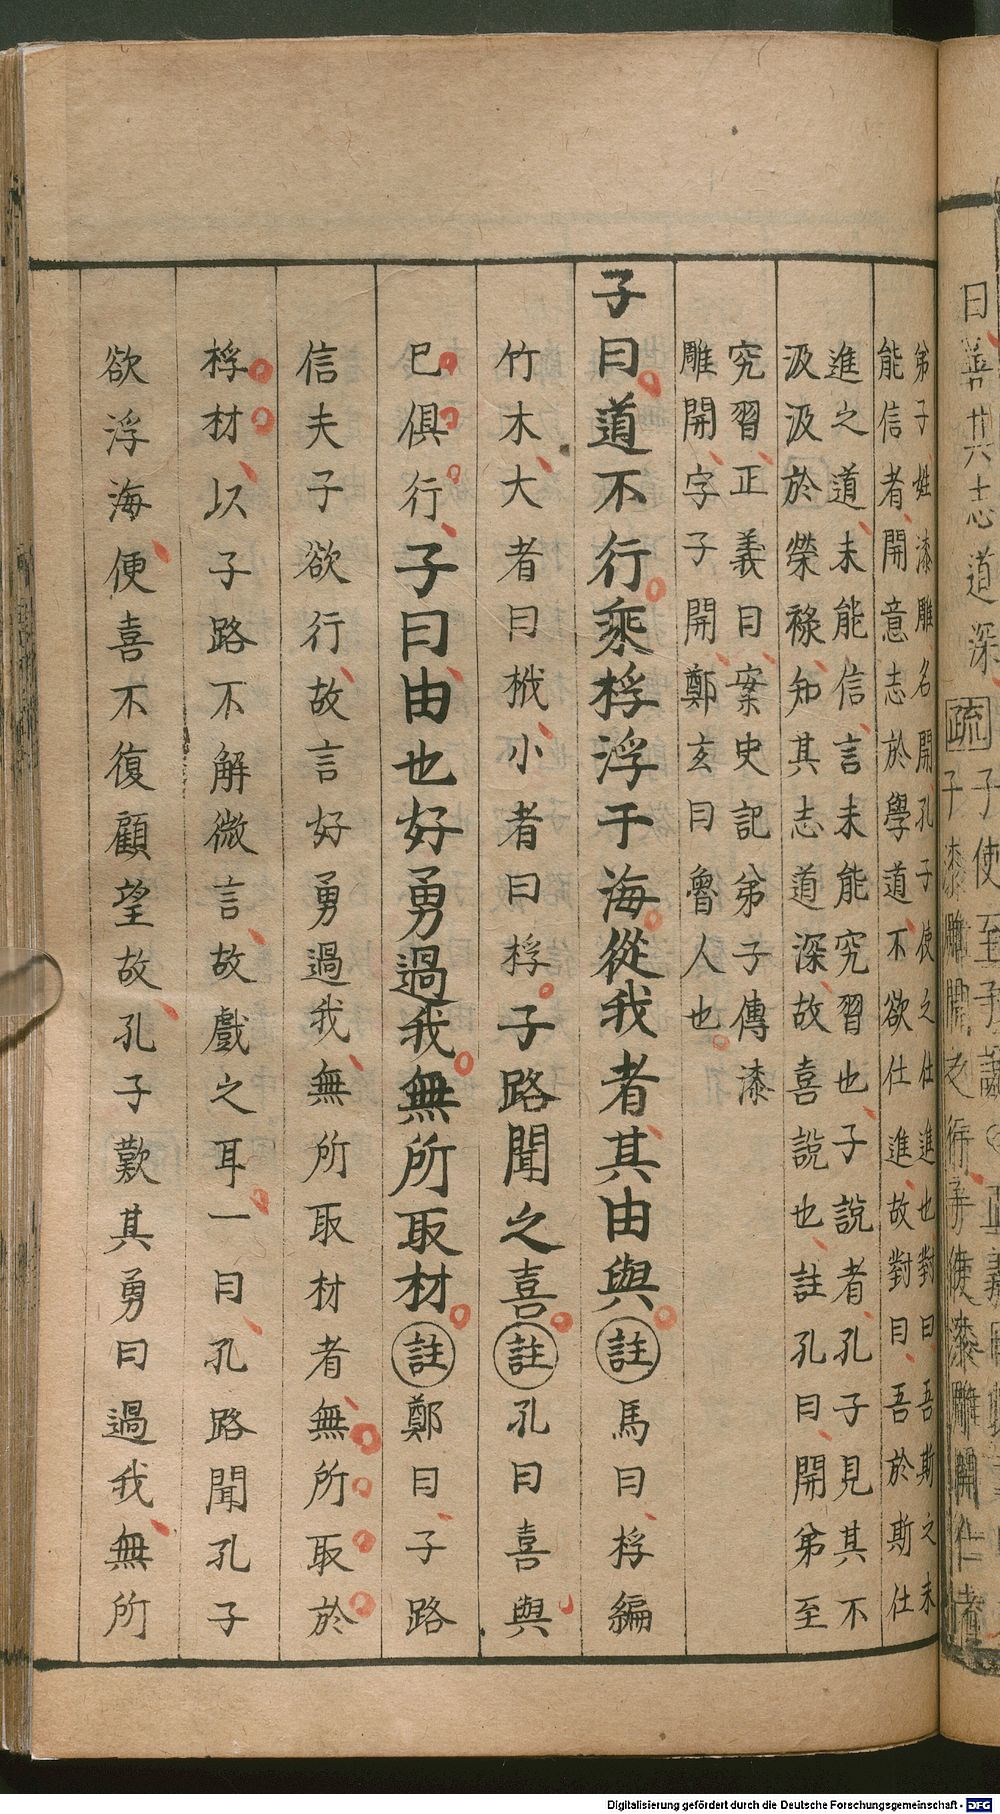 弟子姓漆雕名開孔子使之仕進也對曰吾斯之未
能信者開意志於學道不欲仕進故對曰吾於斯仕
進之道未能信言未能究習也子說者孔子見其不
汲汲於榮祿知其志道深故喜說也註孔曰開弟至
究習正義曰案史記弟子傳漆
雕開字子開鄭玄曰魯人也
子曰道不行乘桴浮于海從我者其由與註馬曰桴編
竹木大者曰栰小者曰桴子路聞之喜註孔曰喜與
已俱行子曰由也好勇過我無所取材註鄭曰子路
信夫子欲行故言好勇過我無所取材者無所取於
桴材以子路不解微言故戲之耳一曰孔路聞孔子
欲浮海便喜不復顧望故孔子歎其勇曰過我無所
Digitalisierung gefördert durch die Deutsche Forschungsgemeinschaft - DFG